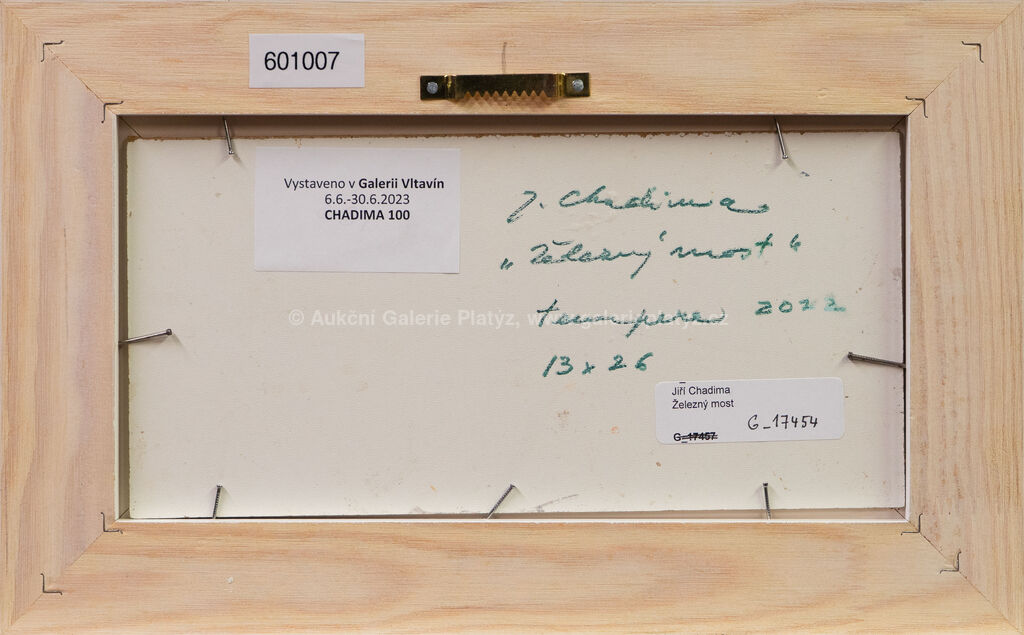 601007
Vystaveno v Galerii Vltavín
6.6.-30.6.2023
CHADIMA 100
J. Chadima
„Železný most“
tempera 2022
13 x 26
© Aukční Galerie Platýz, www.galerieplatyz.cz
Jiří Chadima
Železný most
G_17457 G_17454